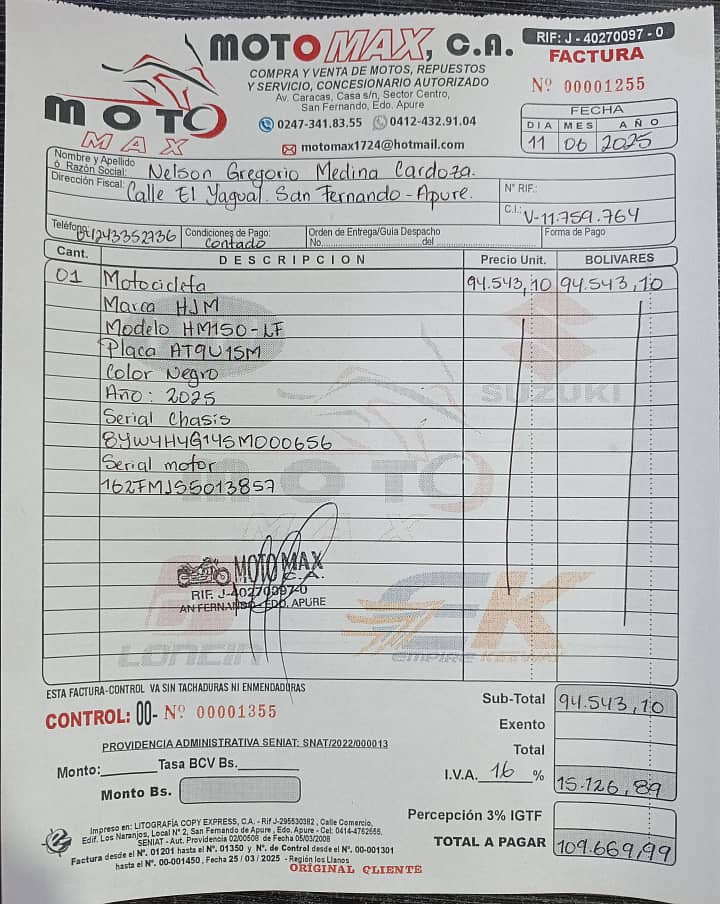 MOTO MAX
MOTO MAX, C.A.
COMPRA Y VENTA DE MOTOS, REPUESTOS
Y SERVICIO, CONCESIONARIO AUTORIZADO
Av. Caracas, Casa s/n, Sector Centro,
San Fernando, Edo. Apure
0247-341.83.55 0412-432.91.04
motomax1724@hotmail.com
RIF: J - 40270097 - 0
FACTURA
Nº 00001255
FECHA
DIA MES AÑO
11 06 2025
Nombre y Apellido
ó Razón Social: Nelson Gregorio Medina Cardoza.
Dirección Fiscal: Calle El Yagual. San Fernando - Apure.
N° RIF:
C.I.: V-11.759.764
Teléfono: 04243352736 Condiciones de Pago: Contado Orden de Entrega/Guia Despacho No. del Forma de Pago
Cant. DESCRIPCION Precio Unit. BOLIVARES
01 Motocicleta 94.543,10 94.543,10
Marca HJM
Modelo HM150-LF
Placa AT9U15M
Color Negro
Año: 2025
Serial Chasis
8YW4H4G14SM000656
Serial motor
162FMJS5013857
SUZUKI
MOTO
MAX
MOTO MAX
C.A.
RIF. J-40270097-0
AN FERNANDO - EDO. APURE
LONCIN
EK
EMPIRE KEEWAY
ESTA FACTURA-CONTROL VA SIN TACHADURAS NI ENMENDADURAS
CONTROL: 00- Nº 00001355
PROVIDENCIA ADMINISTRATIVA SENIAT: SNAT/2022/000013
Monto: Tasa BCV Bs.
Monto Bs.
Sub-Total 94.543,10
Exento
Total
I.V.A. 16 % 15.126,89
Percepción 3% IGTF
TOTAL A PAGAR 109.669,99
Impreso en: LITOGRAFÍA COPY EXPRESS, C.A. - Rif J-295530382 , Calle Comercio,
Edif. Los Naranjos, Local N° 2, San Fernando de Apure , Edo. Apure - Cel: 0414-4762555.
SENIAT - Aut. Providencia 02/00508 de Fecha 05/03/2008
Factura desde el N°. 01201 hasta el N°. 01350 y N°. de Control desde el N°. 00-001301
hasta el N°. 00-001450 , Fecha 25 / 03 / 2025 - Región los Llanos
ORIGINAL CLIENTE